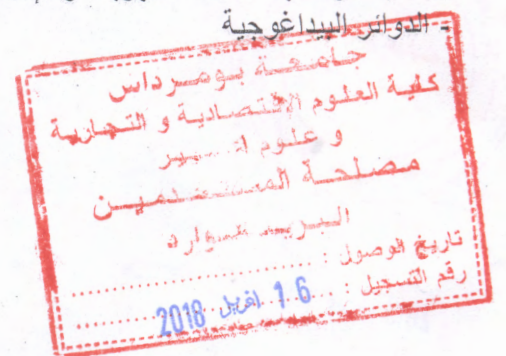 - الدوائر البيداغوجية
جامعة بومرداس
كلية العلوم الاقتصادية و التجارية
و علوم التسيير
مصلحة المستخدمين
البريد الوارد
تاريخ الوصول :
رقم التسجيل :
16 افريل 2018